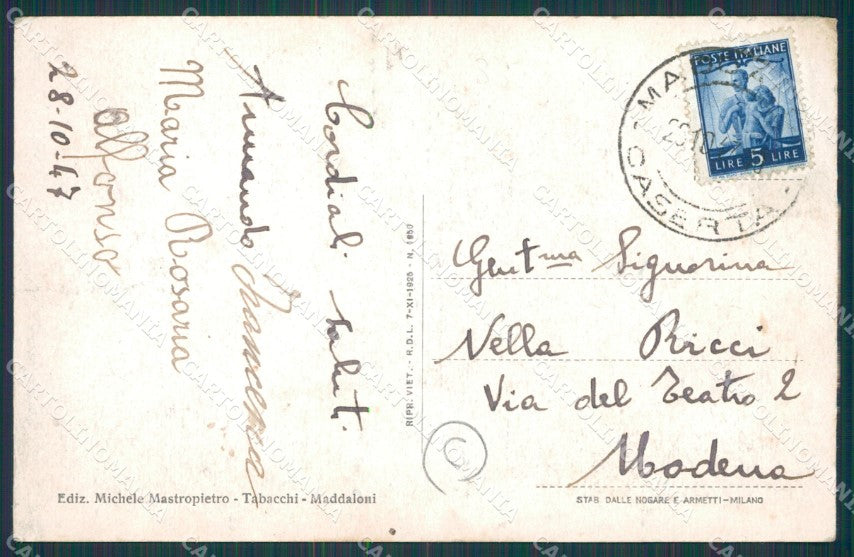 Cordiali saluti.
Armando Francesca
Maria Rosaria
Alfonso
28-10-47
Ediz. Michele Mastropietro - Tabacchi - Maddaloni
RIPR. VIET. - R.D.L. 7-XI-1925 - N. 1950
POSTE ITALIANE
LIRE 5 LIRE
CASERTA
Gent.ma Signorina
Nella Ricci
Via del Teatro 2
Modena
STAB. DALLE NOGARE E ARMETTI - MILANO
CARTOLINOMANIA